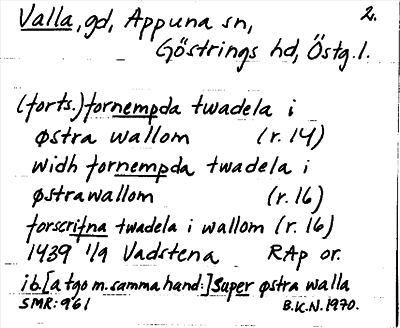 Valla, gd, Appuna sn, 2.
Göstrings hd, Östg. l.
(forts.) fornempda twadela i
østra wallom (r. 14)
widh fornempda twadela i
østrawallom (r. 16)
forscrifna twadela i wallom (r. 16)
1439 1/9 Vadstena RAp or.
ib. [a tgo m. samma hand:] Super østra walla
SMR: 961 B.K.N. 1970.